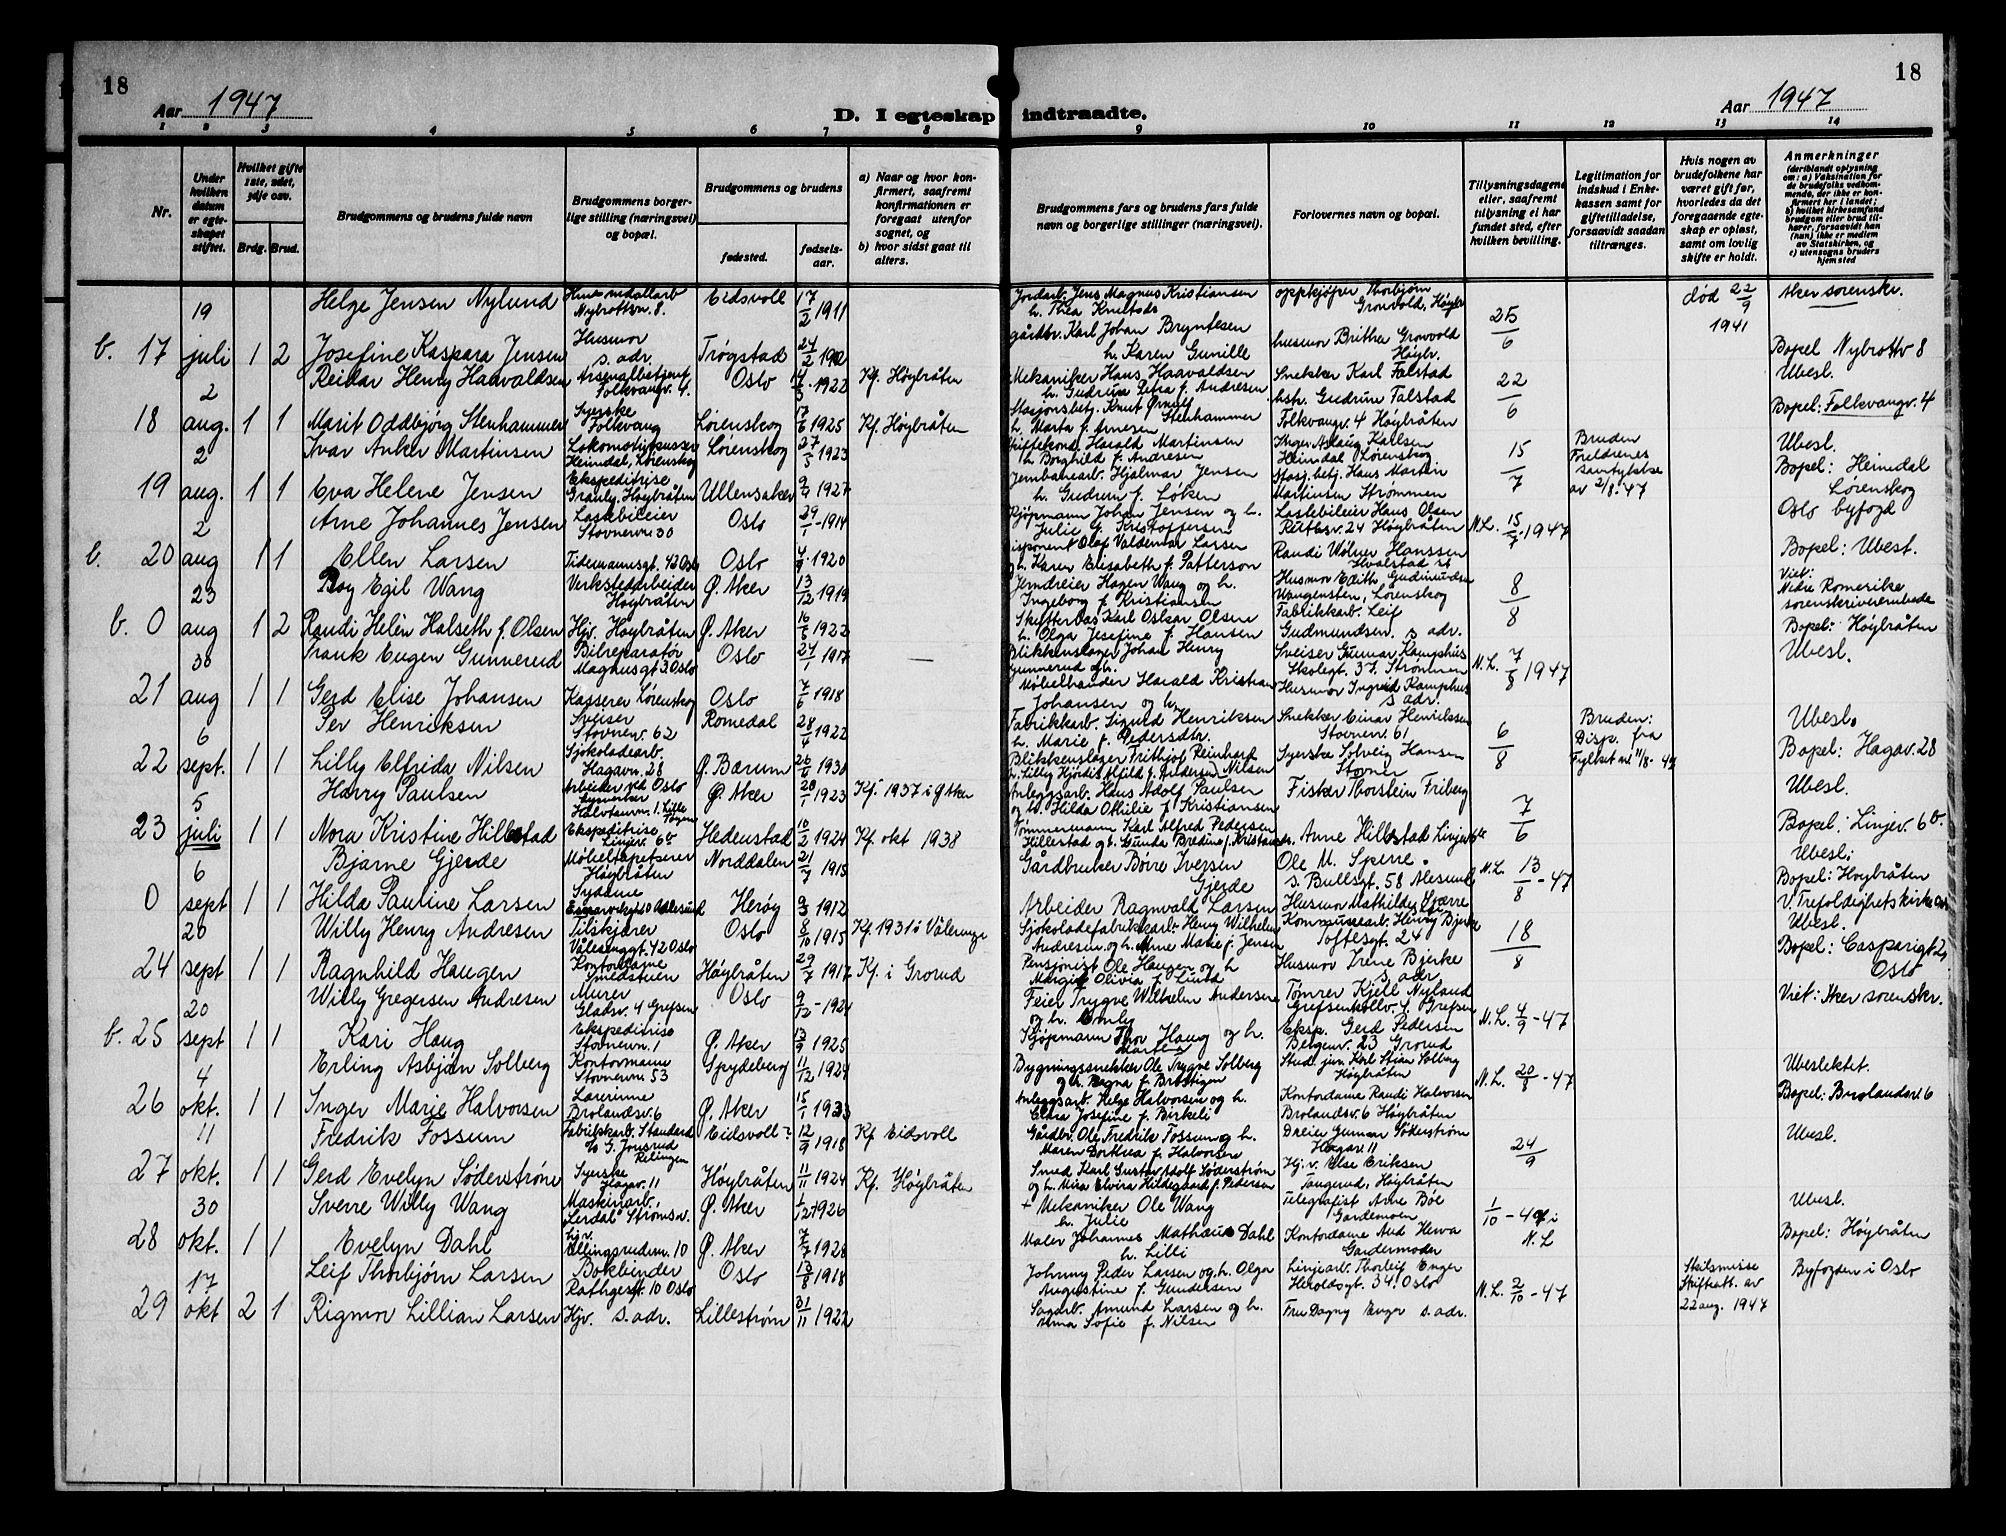 18
Aar 1947
D. I egteskap indtraadte.
Aar 1947
18
1 2 3 4 5 6 7 8 9 10 11 12 13 14
Nr.
Under hvilken datum er egteskapet stiftet.
Hvilket gifte 1ste, 2det, 3dje osv.
Brdg. Brud.
Brudgommens og brudens fulde navn
Brudgommens borgerlige stilling (næringsvei) og bopæl.
Brudgommens og brudens
fødested.
fødselsaar.
a) Naar og hvor konfirmert, saafremt konfirmationen er foregaat utenfor sognet, og
b) hvor sidst gaat til alters.
Brudgommens fars og brudens fars fulde navn og borgerlige stillinger (næringsvei).
Forlovernes navn og bopæl.
Tillysningsdagene eller, saafremt tillysning ei har fundet sted, efter hvilken bevilling.
Legitimation for indskud i Enkekassen samt for giftetilladelse, forsaavidt saadan tiltrænges.
Hvis nogen av brudefolkene har været gift før, hvorledes da det foregaaende egteskap er opløst, samt om lovlig skifte er holdt.
Anmerkninger (deriblandt oplysning om: a) Vaksination for de brudefolks vedkommende, der ikke er konfirmert her i landet; b) hvilket kirkesamfund brudgom eller brud tilhører, forsaavidt han (hun) ikke er medlem av Statskirken, og c) utensogns bruders hjemsted
19 Helge Jensen Nylund Nybrottsv. 8. Eidsvoll 17/2 1911 Jordarb. Jens Magnus Kristiansen oppkjøper Thorbjørn 25/6 død 22/9 1941 Aker sorenskr.
h. Thea Knutsdr
gårdbr. Karl Johan Bryntesen
b. 17 juli 1 2 Josefine Kaspara Jensen Husmor s. adr. Trøgstad 24/2 h. Karen Gunille husmor Brithe Gronvold Høybr. Bopel Nybrottv 8
2 Reidar Henry Haavaldsen Folkvangv. 4. Oslo 1922 Kf. Høybråten Mekaniker Hans Haavaldsen Snekker Karl Falstad 22/6 Ubesl.
h. Gudrun Petra f. Andresen hstr. Gudrun Falstad Bopel: Folkvangv. 4
18 aug. 1 1 Marit Oddbjørg Stenhammer Syerske Folkvang Lørenskog 17/6 1925 Kf. Høybråten Stasjonsbetj. Knut Stenhammer Folkvangv. 4 Høybråten
h. Marta f. Arnesen
2 Ivar Anker Martinsen Heimdal, Lørenskog Lørenskog 27/5 1923 Harald Martinsen Karlsen Heimdal Lørenskog 15/7 Bruden Foreldrenes samtykkelse av 2/8-47 Ubesl.
h. Borghild f. Andresen Bopel: Heimdal Lørenskog
19 aug. 1 1 Eva Helene Jensen Ekspeditrise Granly, Høybråten Ullensaker 9/4 1927 Jernbanearb. Hjalmar Jensen Stasj. betj. Hans Martin Martinsen Strømmen
h. Gudrun f. Løken
2 Arne Johannes Jensen Lastebileier Stovnerv. 30 Oslo 29/1-1914 Kjøpmann Johan Jensen og h. Lastebileier Hans Olsen N.L. 15/7-1947 Oslo byfogd
Julie f. Kristoffersen 24 Høybråten
b. 20 aug 1 1 Ellen Larsen Tidemannsgt. 42 Oslo Oslo 1920 Disponent Olaf Valdemar Larsen Randi Wølner Hanssen Bopel: Ubest.
og h. Karen Elisabeth f. Patterson
23 Roy Egil Wang Verkstedarbeider Høybråten Ø. Aker 13/12 1919 Jerndreier Hagen Wang og h. Husmor Edith Gudmundsen 8/8 Viet: Nedre Romerike sorenskriverembede
Ingeborg f. Kristiansen Lørenskog
b. 0 aug 1 2 Randi Helen Halseth f. Olsen Hjv. Høybråten Ø. Aker 16/5 1922 Karl Oskar Olsen Fabrikkarb. Leif Gudmundsen. s adr. Bopel: Høybråten
h. Olga Josefine f. Hansen
30 Frank Eugen Gunnerud Bilreparatør Magnusgt 3. Oslo Oslo 24/1 1917 — Blikkenslager Johan Henry Gunnerud og h. Sveiser Gunnar Kamphus Skolegt. 37. Strømmen N.L. 7/8 1947 Ubesl.
21 aug 1 1 Gerd Elise Johansen Kasserer Lørenskog Oslo 7/6 1918 Møbelhandler Harald Kristian Johansen og h. Husmor Ingrid Kamphus s adr.
6 Per Henriksen Sveiser Stovnerv. 62 Romedal 28/4 1922 Fabrikkarb. Sigurd Henriksen Snekker Einar Henriksen Stovnerv. 61 6/8 Bruden: Disp. fra Fylket nl 11/8-47 Ubesl.
h. Marie f. Pedersdtr.
22 sept. 1 1 Lilly Elfrida Nilsen Sjokoladearb. Hagavn. 28 Ø. Bærum 26/6 1930 Blikkenslager Frithjof Reinhard Nilsen Syerske Solveig Hansen Stovner Bopel: Hagav. 28
5 Harry Paulsen Arbeider Ø. Aker 28/1 1923 Kf. 1937 i Ø Aker Anleggsarb. Hans Adolf Paulsen Fisker Thorstein Friberg 7/6 Ubesl.
og h. Hilda Othilie f. Kristiansen
23 juli 1 1 Nora Kristine Hillestad Ekspeditrise Linjev. 6b Hedenstad 10/2 1924 Kf. okt 1938 Tømmermann Karl Alfred Pedersen Hillestad og h. Gunda Bredine f. Kristiansdr. Anne Hillestad Bopel: Linjev. 6b.
6 Bjarne Gjerde Møbeltapetserer Høybråten Norddalen 21/7 1915 Gårdbruker Børre Iversen Gjerde Ole M. Sperre. s. Bullsgt. 58 Alesund N.L. 13/8-47 Ubesl;
0 sept 1 1 Hilda Pauline Larsen Sydame Herøy 9/3 1912 Arbeider Ragnvald Larsen Husmor Mathilde Bopel: Høybråten V. Trefoldighetskirke
20 Willy Henry Andresen Tilskjærer Vålerenggt. 42 Oslo Oslo 8/10 1915 Kf. 1931 i Vålerenga Sjokoladefabrikkarb. Henry Wilhelm Andresen og h. Anne Marie f. Jensen Henry Bjerke Toftesgt. 24 18/8 Ubesl.
24 sept 1 1 Ragnhild Haugen Kontordame Høybråten 29/7 1917 Kf. i Grorud Pensjonist Ole Haugen og h Husmor Irene Bjerke s. adr. Bopel: Casparigt 2, Oslo
Margit Olivia f. Lund
20 Willy Gregersen Andresen Murer Gladsv. 4 Grefsen Oslo 9/12-1924 Feier Trygve Wilhelm Andersen og h. Emly Tømrer Kjell Nyland Grefsenkollv. 4. Grefsen N.L. 4/9-47 Viet: Aker sorenskr.
b. 25 sept 1 1 Kari Haug Ekspeditrise Stovnerv. 1 Ø. Aker 13/9 1925 Kjøpmann Thor Haug og h. Eksp. Gerd Pedersen Bergenv. 23 Grorud
4 Erling Asbjørn Solberg Kontormann Stovnerv. 53 Spydeberg 11/12 1924 Bygningssnekker Ole Trygve Solberg Stud. jur. Karl Stian Solberg Høybråten N.L. 20/8-47 Ubeslektet.
og h. Ragna f. Brattigen
26 okt. 1 1 Inger Marie Halvorsen Lærerinne Brolandsv. 6 Ø. Aker 15/1 1923 Anleggsarb. Helge Halvorsen og h. Kontordame Randi Halvorsen Brolandsv. 6 Høybråten Bopel: Brolandsv. 6
Clara Josefine f. Birkeli
11 Fredrik Fossum Fabrikkarb. Standard Eidsvoll? 12/9 1918 Kf. Eidsvoll Gårdbr. Ole Fredrik Fossum og h. Dreier Gunnar Søderstrøm Hagav. 11 24/9 Ubesl.
Maren Dorthea f. Halvorsen
27 okt. 1 1 Gerd Evelyn Søderstrøm Syerske Hagav. 11 Høybråten 11/11 1924 Kf. Høybråten Smed Karl Gustav Adolf Søderstrøm Hj. v. Else Eriksen Høybråten
og h. Mira Elvira Hildegaard f. Pedersen
30 Sverre Willy Wang Maskinarb. Ø. Aker 1/12 1926 + Mekaniker Ole Wang Telegrafist Arne Bøe Gardemoen 1/10-47 i N.L Ubesl.
h. Julie
28 okt. 1 1 Evelyn Dahl Ellingsrudvn. 10 Ø. Aker 7/7 1928 Maler Johannes Mathæus Dahl Kontordame Aud Herva Gardermoen Bopel: Høybråten
h. Lilli
17 Leif Thorbjørn Larsen Bokbinder Rathgest. 10 Oslo Oslo 13/8 1918 Johnny Peder Larsen og h. Olga Linjearb. Thorleif Enger Heroldsgt. 34. Oslo N.L. 2/10-47 Skilsmisse Skifteatt. av 22 aug. 1947 Byfogden i Oslo
Augustine f. Gundersen
29 okt 2 1 Rigmor Lillian Larsen Hjv. s. adr. Lillestrøm 31/11 1922 Sagarb. Amund Larsen og h. Fru Dagny Enger s. adr.
Anna Sofie f. Nilsen